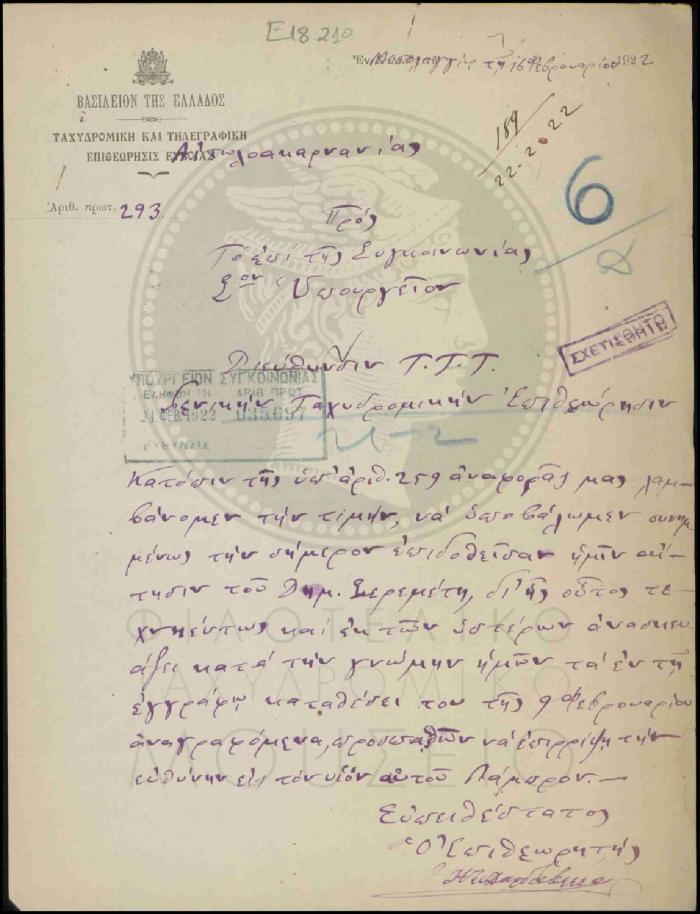 Ε18.210
Ἐν Μεσολογγίῳ τῇ 16 Φεβρουαρίου 1922
ΒΑΣΙΛΕΙΟΝ ΤΗΣ ΕΛΛΑΔΟΣ
ΤΑΧΥΔΡΟΜΙΚΗ ΚΑΙ ΤΗΛΕΓΡΑΦΙΚΗ
ΕΠΙΘΕΩΡΗΣΙΣ ΕΥΒΟΙΑΣ
Αἰτωλοακαρνανίας
189
22-2-22
6
Ἀριθ. πρωτ. 293
Πρὸς
Τὸ ἐπὶ τῆς Συγκοινωνίας
Σον Ὑπουργεῖον
ΣΧΕΤΙΣΘΗΤΩ
Διεύθυνσιν Τ.Τ.Τ.
ΥΠΟΥΡΓΕΙΟΝ ΣΥΓΚΟΙΝΩΝΙΑΣ
ΑΡΙΘ ΠΡΩΤ
ΦΕΒ 1922 035697
Γενικὴν Ταχυδρομικὴν Ἐπιθεώρησιν
21-2
Κατόπιν τῆς ὑπ' ἀριθ. 259 ἀναφορᾶς μας λαμ-
βάνομεν τὴν τιμήν, νὰ ὑποβάλωμεν συνημ
μένως τὴν σήμερον ἐπιδοθεῖσαν ἡμῖν αἴ-
τησιν τοῦ Δημ. Σερεμέτη, δι' ἧς οὗτος τε-
χνηέντως καὶ ἐκ τῶν ὑστέρων ἀνασκευ
άζει κατὰ τὴν γνώμην ἡμῶν τὰ ἐν τῇ
ἐγγράφῳ καταθέσει του τῆς 9 Φεβρουαρίου
ἀναγραφόμενα, προσπαθῶν νὰ ἐπιρρίψῃ τὴν
εὐθύνην εἰς τὸν υἱόν αὐτοῦ Λάμπρον.—
Εὐπειθέστατος
Ὁ Ἐπιθεωρητής
ΦΙΛΟΤΕΛΙΚΟ
ΤΑΧΥΔΡΟΜΙΚΟ
ΜΟΥΣΕΙΟ